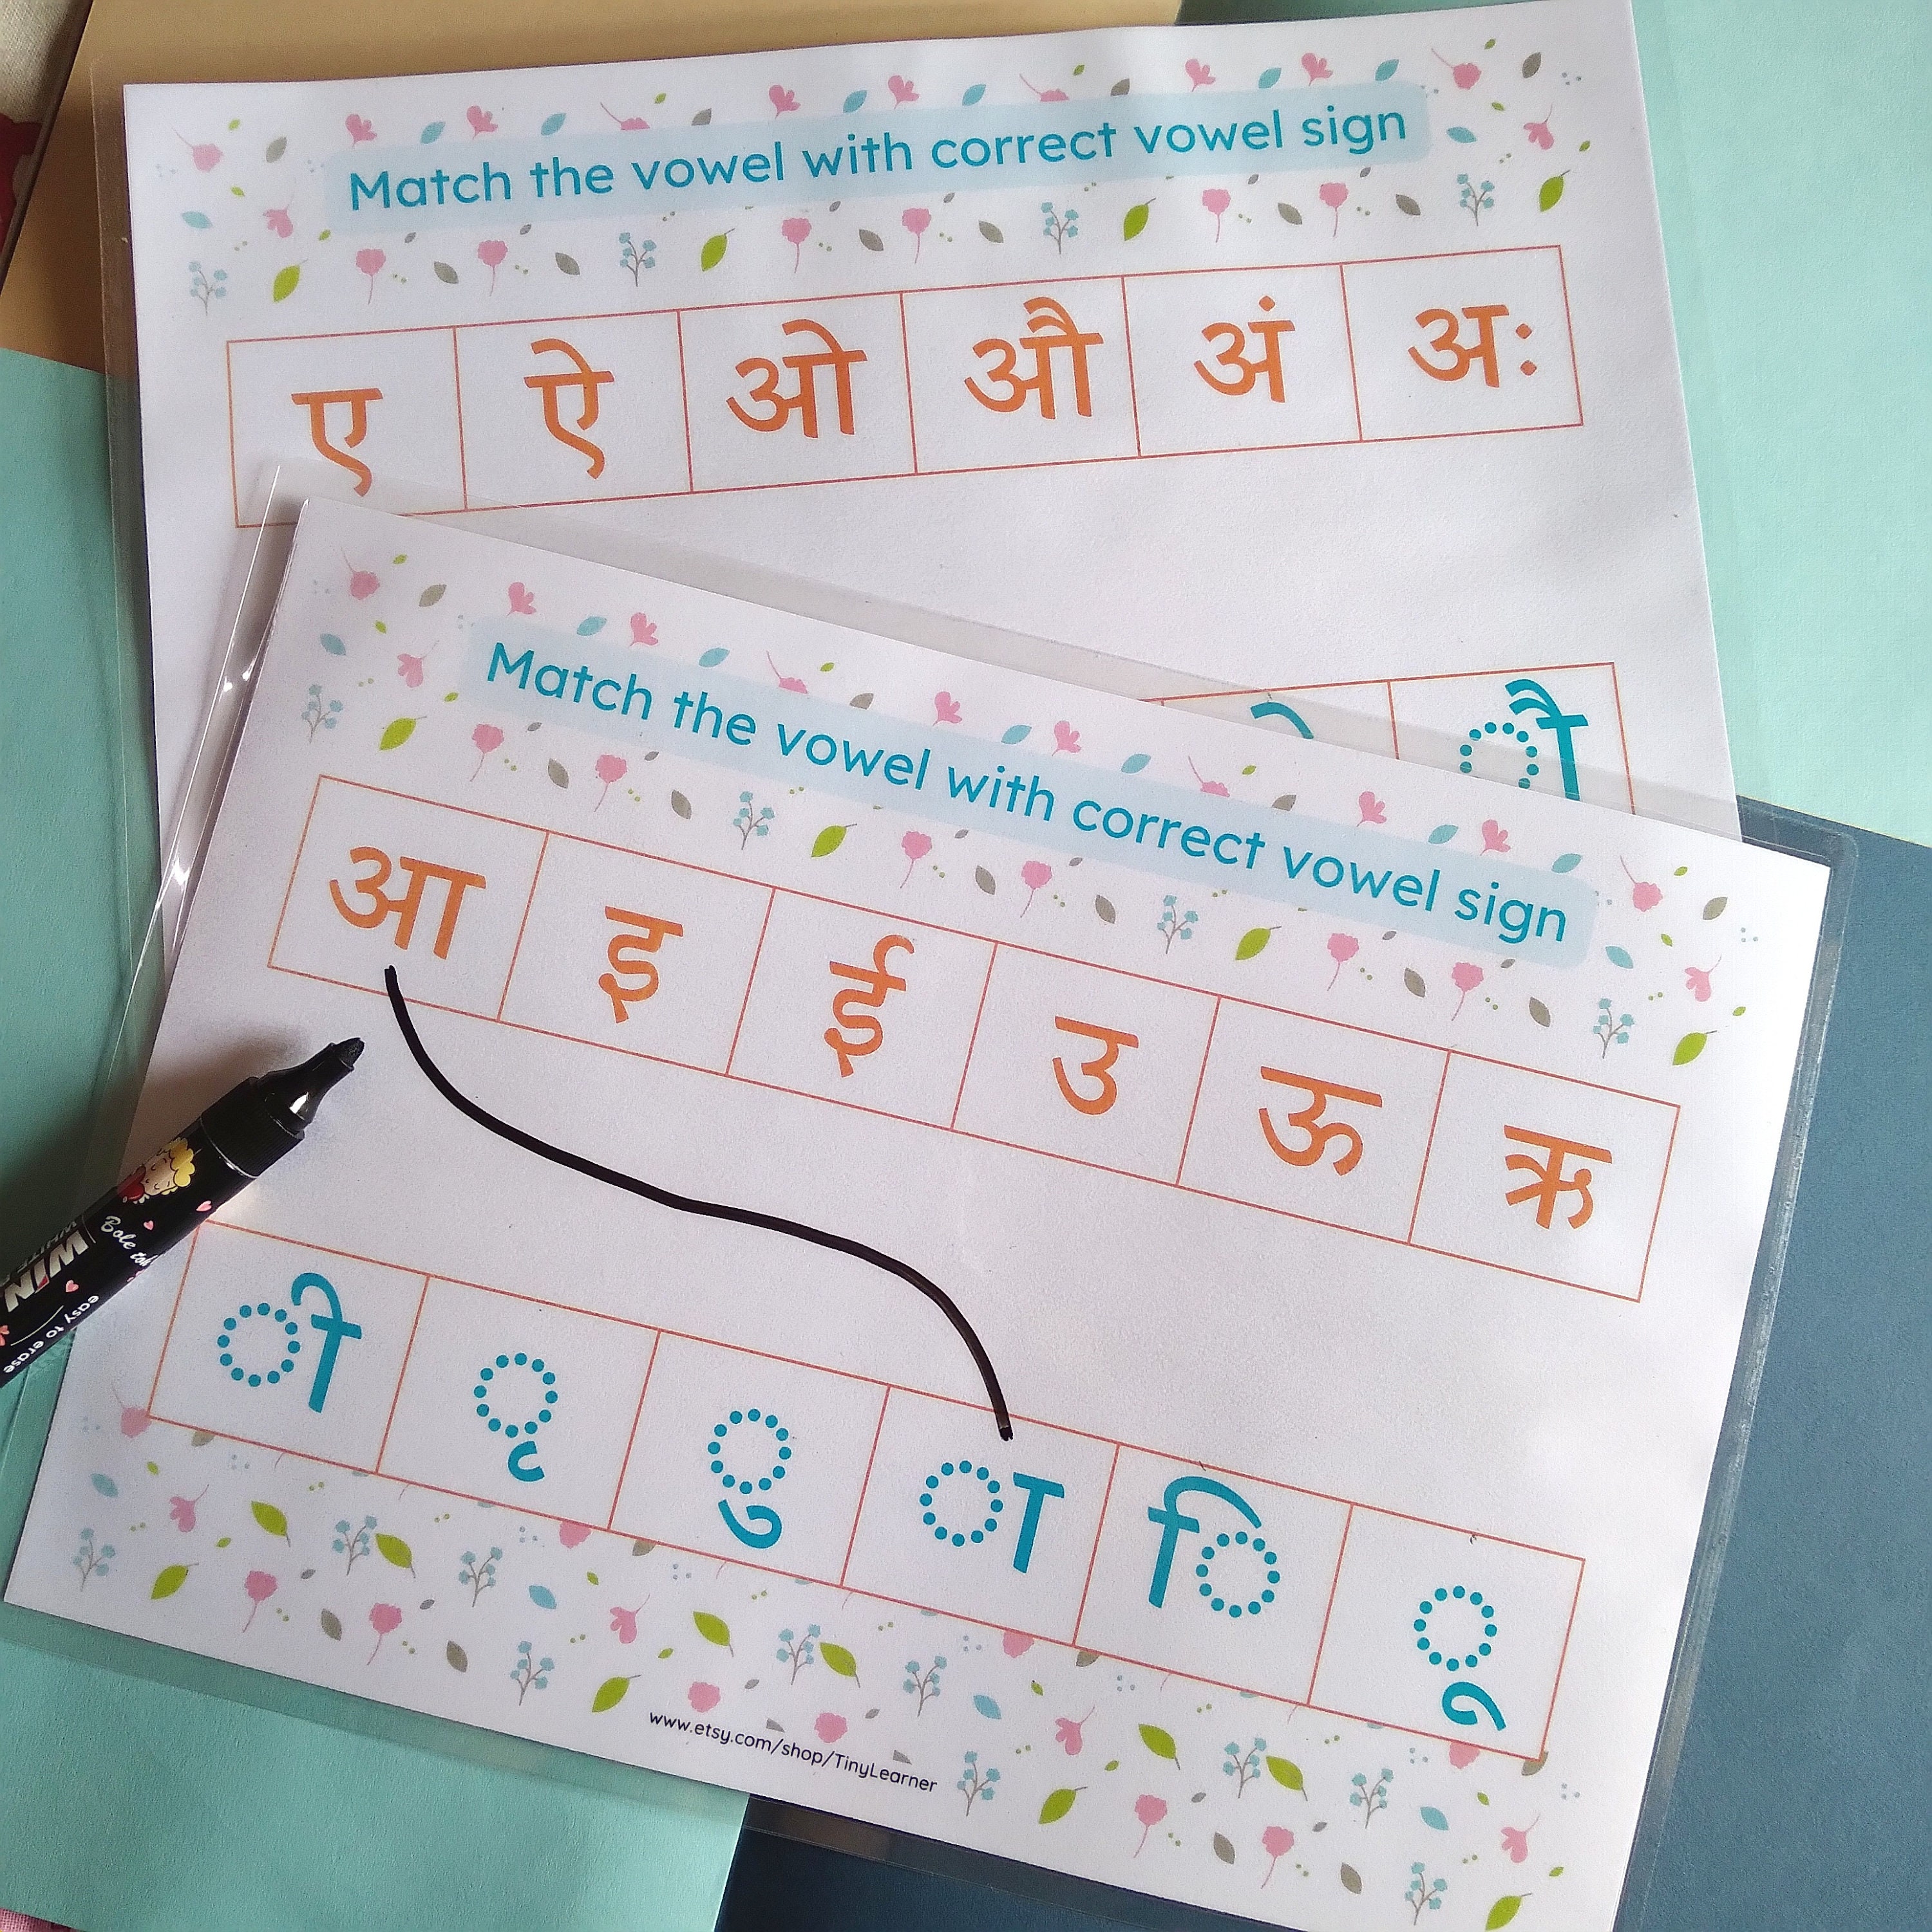 Match the vowel with correct vowel sign
ए ऐ ओ औ अं अः
ौ
Match the vowel with correct vowel sign
आ इ ई उ ऊ ऋ
ी ृ ु ा ि ू
www.etsy.com/shop/TinyLearner
WIN
Bole to
easy to erase